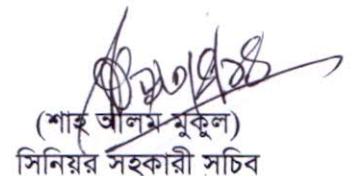 (শাহ আলম মুকুল)
সিনিয়র সহকারী সচিব